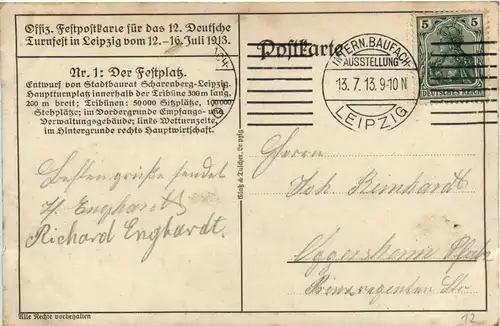 Offiz. Festpostkarte für das 12. Deutsche
Turnfest in Leipzig vom 12.-16. Juli 1913.
Nr. 1: Der Festplatz.
Entwurf von Stadtbaurat Scharenberg-Leipzig.
Hauptturnplatz innerhalb der Tribüne 300 m lang,
200 m breit; Tribünen: 50000 Sitzplätze, 100000
Stehplätze; im Vordergrunde Empfangs- und
Verwaltungsgebäude; links Wetturnzeite,
im Hintergrunde rechts Hauptwirtschaft.
Besten grüße sendet
Enghardt
Richard Enghardt.
Alle Rechte vorbehalten
Postkarte
INTERN. BAUFACH-
AUSSTELLUNG
13. 7. 13. 9-10 N
LEIPZIG
5 5
DEUTSCHES REICH
Herrn
Joh Reinhardt
Oggersheim Pfalz
Prinzregenten Str
12